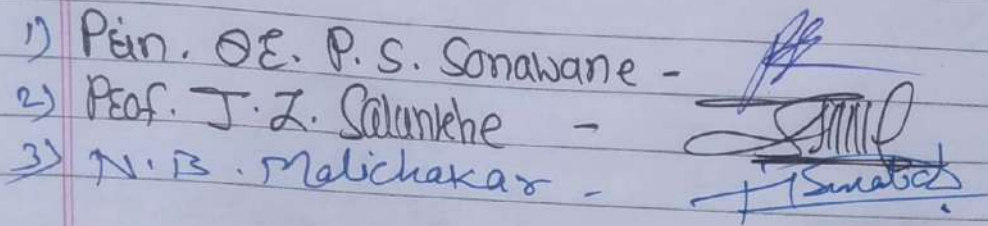 1) Prin. Dr. P. S. Sonawane -
2) Prof. J. Z. Salunkhe -
3) N. B. Malichakar -